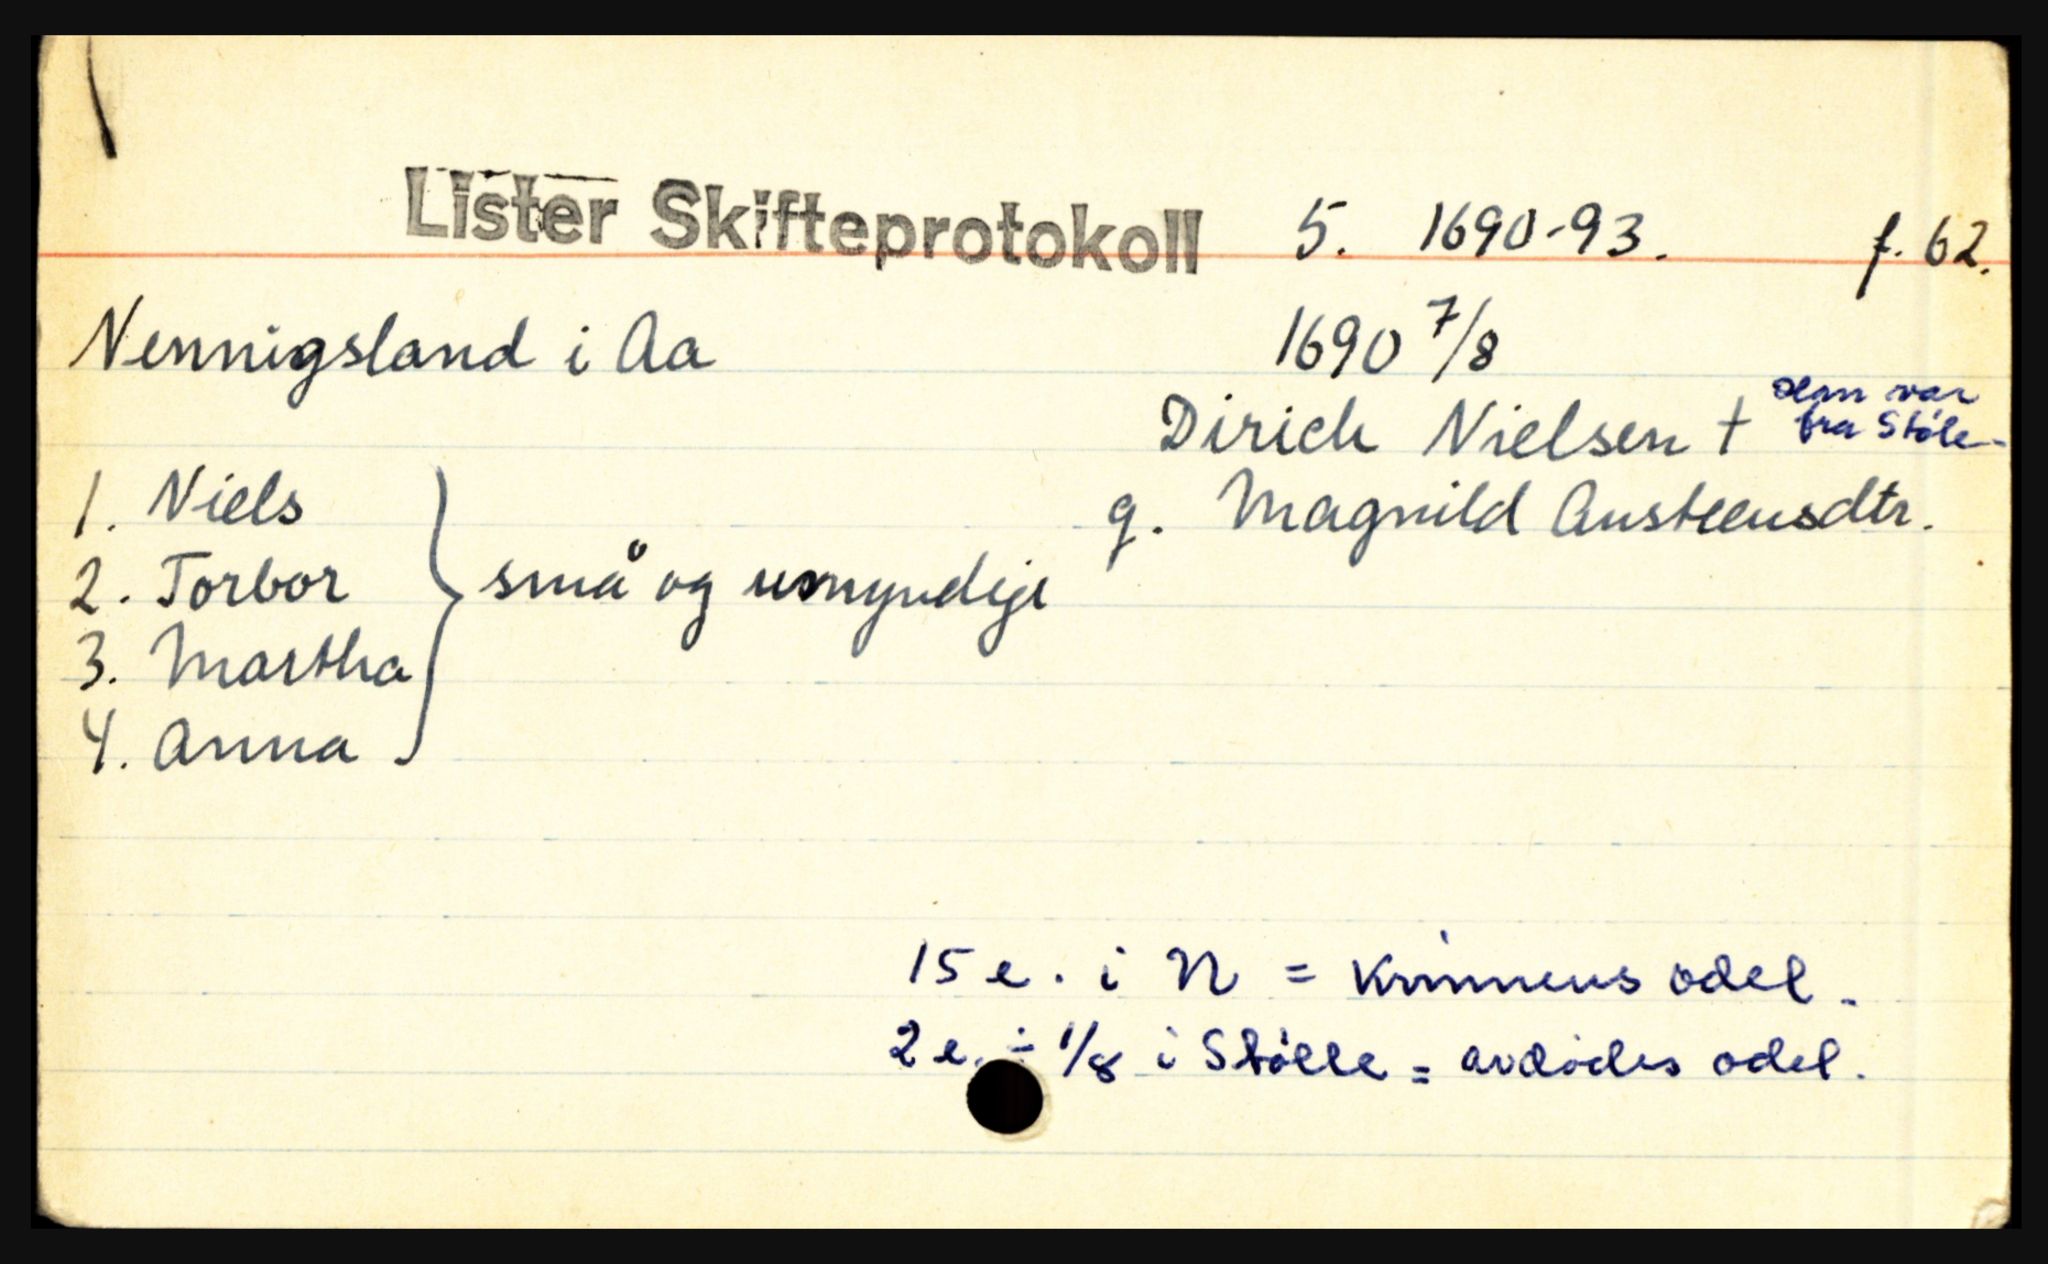 Lister Skifteprotokoll 5. 1690-93. f. 62.
Nennigsland i Aa 1690 7/8
Dirich Nielsen † som var
fra Støle
1. Niels g. Magnild Austeensdtr.
2. Torbor } små og umyndige
3. Martha
4. Anna
15 e. i N = kvinnens odel.
2 e. ÷ 1/8 i Stølle = avdødes odel.